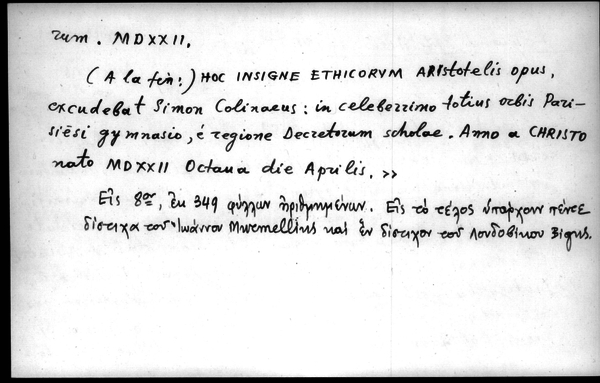 rum. MDXXII.
(A la fin:) HOC INSIGNE ETHICORVM ARIstotelis opus,
excudebat Simon Colinaeus: in celeberrimo totius orbis Pari-
siēsi gymnasio, é regione Decretorum scholae. Anno a CHRISTO
nato MDXXII Octaua die Aprilis. »
Εἰς 8ον, ἐκ 349 φύλλων ἠριθμημένων. Εἰς τὸ τέλος ὑπάρχουν πέντε
δίστιχα τοῦ Ἰωάννου καὶ ἓν δίστιχον τοῦ Λουδοβίκου